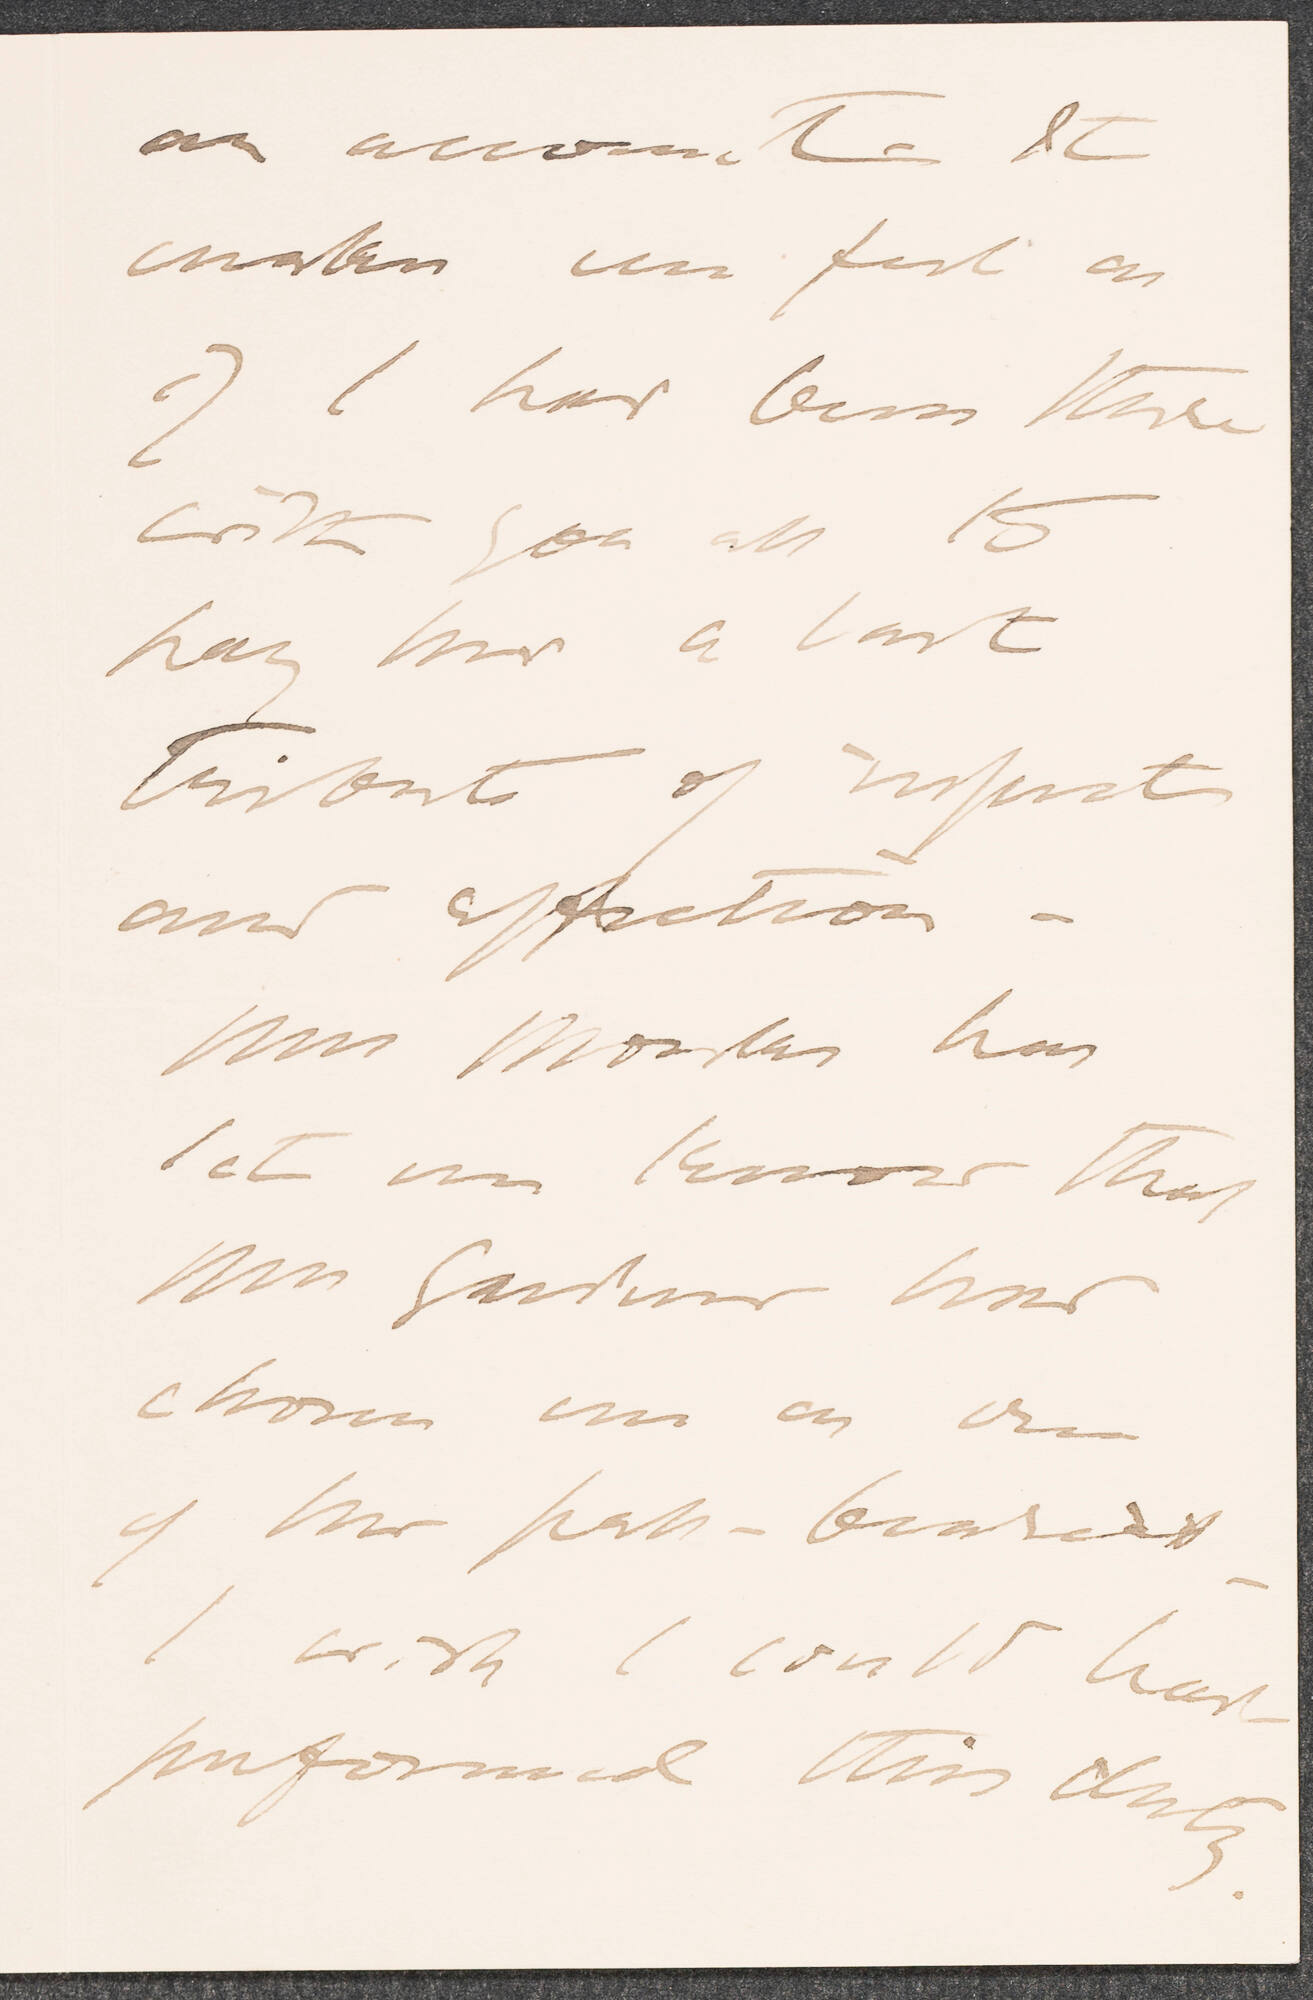 an account - It
makes me feel as
if I had been there
with you all to
pay her a last
tribute of respect
and affection -
Mrs Monks has
let me know that
Mrs Gardner had
chosen me as one
of her pall-bearers -
I wish I could have
performed this duty.